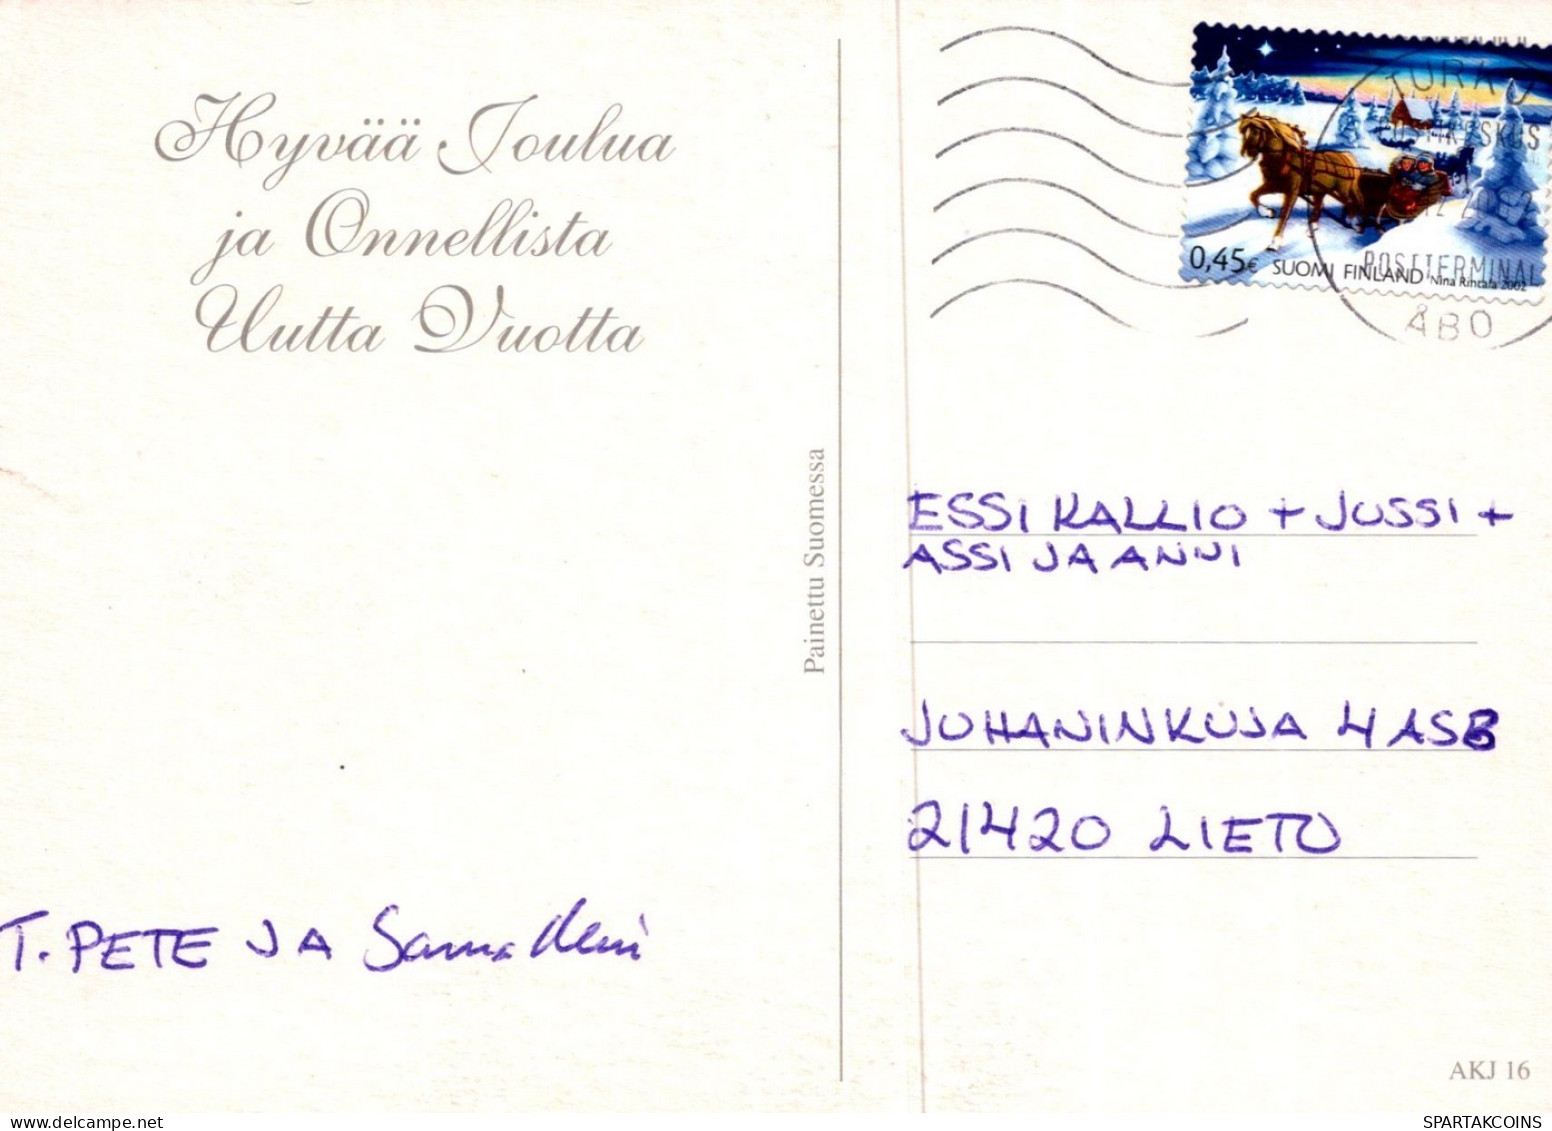 Hyvää Joulua
ja Onnellista
Uutta Vuotta
T. PETE JA
Painettu Suomessa
TURKU
POSTIKESKUS
POSTTERMINAL
ÅBO
0,45€ SUOMI FINLAND Nina Rintala 2002
ESSI KALLIO + JUSSI +
ASSI JA ANNI
JUHANINKUJA 4 AS8
21420 LIETO
AKJ 16
SPARTAKCOINS